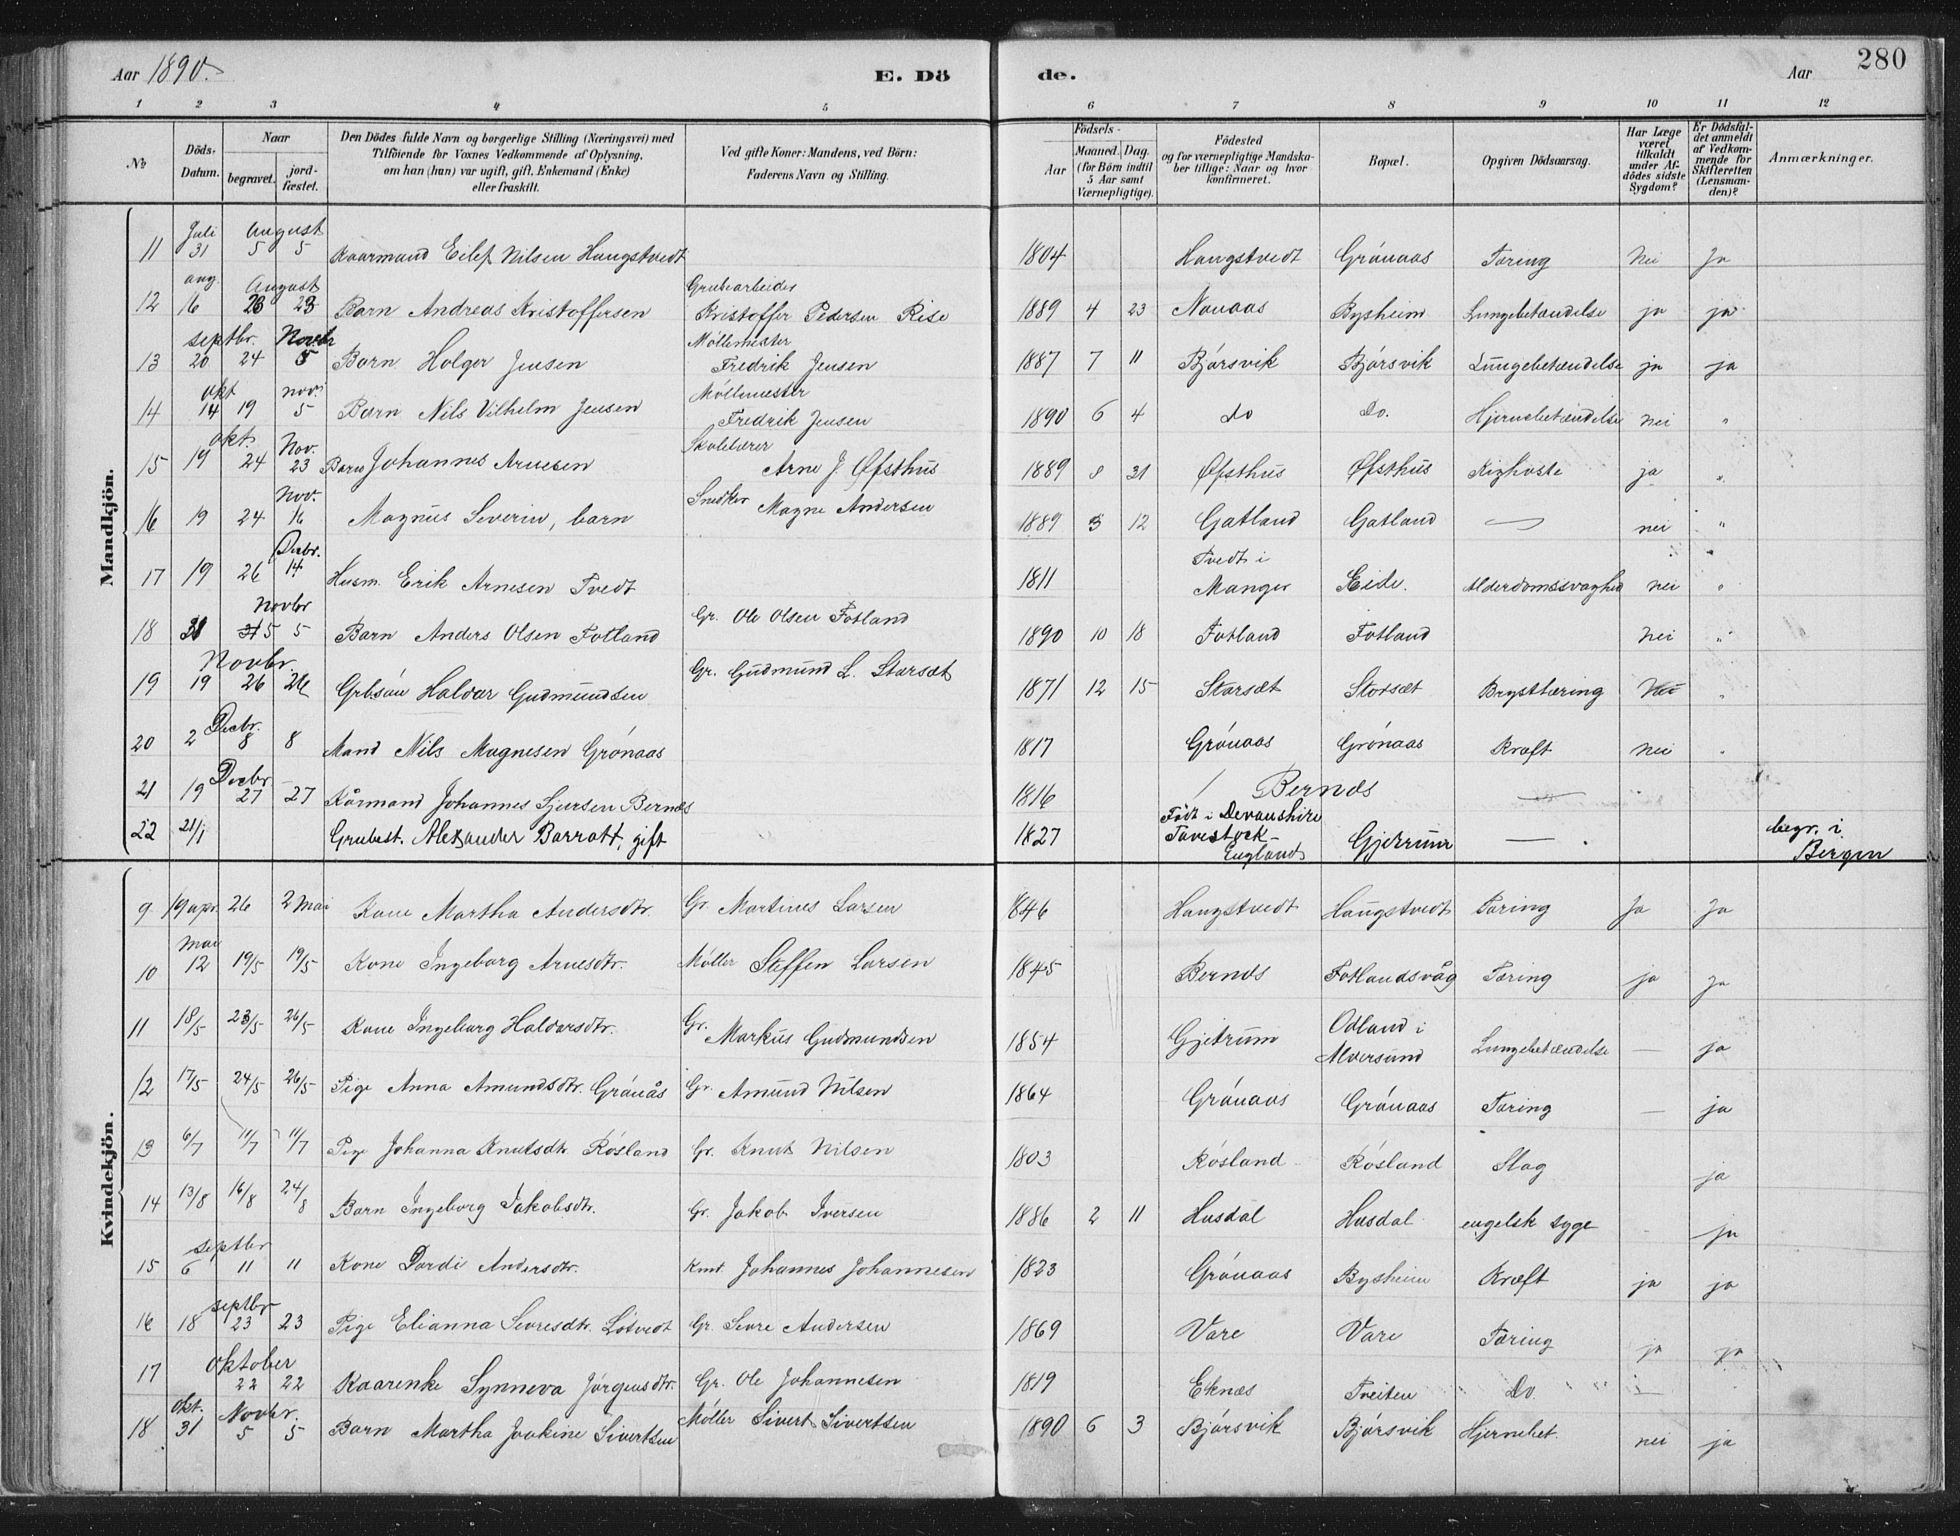 Aar 1890.
E. Dö
de.
Aar
280
1 2 3 4 5 6 7 8 9 10 11 12
No
Döds-Datum.
Naar
begravet.
jord-fæstet.
Den Dödes fulde Navn og borgerlige Stilling (Næringsvei) med
Tilföiende for Voxnes Vedkommende af Oplysning,
om han (hun) var ugift, gift, Enkemand (Enke)
eller fraskilt.
Ved gifte Koner: Mandens, ved Börn:
Faderens Navn og Stilling.
Födsels-
Aar
Maaned.
Dag.
(for Börn indtil
5 Aar samt
Værnepligtige).
Födested
og for værnepligtige Mandska-
ber tillige: Naar og hvor
konfirmeret.
Bopæl.
Opgiven Dödsaarsag.
Har Læge
været
tilkaldt
under Af-
dödes sidste
Sygdom?
Er Dödsfal-
det anmeldt
af Vedkom-
mende for
Skifteretten
(Lensman-
den)?
Anmærkninger.
Mandkjön.
Juli August
11 31 5 5 Kaarmand Eilef Nilsen Haugstvedt 1804 Haugstvedt Grönaas Tæring Nei Ja
aug. August Grubearbeider
12 16 23 23 Barn Andreas Kristoffersen Kristoffer Pedersen Rise 1889 4 23 Nonaas Bysheim Lungebetændelse ja ja
septbr. Novbr Möllemester
13 20 24 5 Barn Holger Jensen Fredrik Jensen 1887 7 11 Bjørsvik Bjørsvik Lungebetændelse ja ja
okt nov. Möllemester
14 14 19 5 Barn Nils Vilhelm Jensen Fredrik Jensen 1890 6 4 do Do. Hjernebetændelse nei "
okt. Nov. Skolelærer
15 19 24 23 Barn Johannes Arnesen Arne J. Øfsthus 1889 8 31 Øfsthus Øfsthus Kighoste ja "
Nov.
16 19 24 16 Magnus Severin, barn Snedker Magne Andersen 1889 3 12 Gatland Gatland — nei "
Decbr. Tvedt i "
17 19 26 14 Husm. Erik Arnesen Tvedt 1811 Manger Eide. Alderdomssvaghed nei "
Novbr
18 31 31 5 5 Barn Anders Olsen Fotland Gr. Ole Olsen Fotland 1890 10 18 Fotland Fotland Nei "
Novbr.
19 19 26 26 Grbsön Haldor Gudmundsen Gr. Gudmund L. Storsæt 1871 12 15 Storsæt Storsæt Brysttæring Nei "
Decbr.
20 2 8 8 Mand Nils Magnesen Grönaas 1817 Grönaas Grönaas Kræft Nei "
Decbr
21 19 27 27 Kårmand Johannes Sjursen Bernæs 1816 / Bernæs —
22 21/1 Grubest. Alexander Barratt, gift 1827 Födt i Devonshire
Tavestock- England Gjetrum — begr. i
Bergen
Kvindekjön.
9 19 apr. 26 2 Mai Kone Martha Andersdtr. Gr. Martinus Larsen 1846 Haugstvedt Haugstvedt Tæring Ja Ja
mai
10 12 19/5 19/5 Kone Ingeborg Arnesdtr. Möller Steffen Larsen 1845 Bernæs Fotlandsvåg Tæring ja Ja
11 18/5 23/5 26/5 Kone Ingeborg Haldorsdtr. Gr. Markus Gudmundsen 1854 Gjetrum Odland i
Alversund Lungebetændelse — ja
12 17/5 24/5 26/5 Pige Anna Amundsdtr. Grönås Gr. Amund Nilsen 1864 Grönaas Grönaas Tæring — ja
13 6/7 11/7 11/7 Pige Johanna Knutsdtr Røsland Gr. Knut Nilsen 1803 Røsland Røsland Slag ja
14 13/8 16/8 24/8 Barn Ingeborg Jakobsdtr. Gr. Jakob Iversen 1886 2 11 Husdal Husdal engelsk syge ja
septbr
15 6 11 11 Kone Dordi Andersdtr. Kmt. Johannes Johannesen 1823 Grönaas Bysheim Kræft ja ja
septbr
16 18 23 23 Pige Elianna Sevresdtr. Løtvedt Gr. Sevre Andersen 1869 Vare Vare Tæring ja ja
oktober
17 22 22 Kaarenke Synneva Jørgensdtr. Gr. Ole Johannesen 1819 Eknæs Tveiten Do. —
okt. Novbr.
18 31 5 5 Barn Martha Joakine Sivertsen Möller Sivert Sivertsen 1890 6 3 Bjørsvik Bjørsvik Hjernebet. nei ja